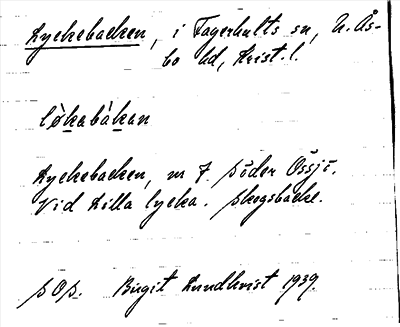 Lyckebacken, i Fagerhults sn, N. Ås-
bo hd, Krist. l.
lø̀kabàkan
Lyckebacken, nr 7 Söder Össjö.
Vid Lilla lycka. Skogsbacke.
SOS. Birgit Lundkvist 1939.